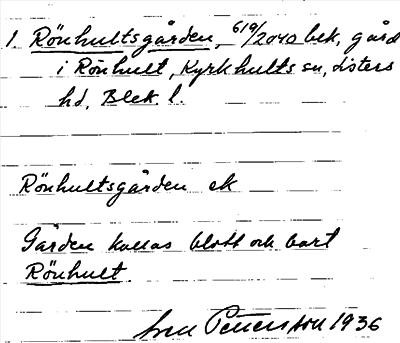 1. Rönhultsgården, 619/2040 bek, gård
i Rönhult, Kyrkhults sn, Listers
hd, Blek. l.
Rönhultsgården ek
Gården kallas blott och bart
Rönhult
Sven Petersson 1936